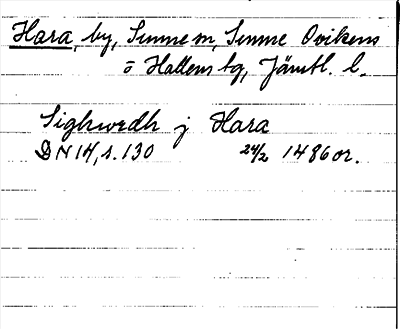 Hara, by, Sunne sn, Sunne Ovikens
o Hallens tg, Jämtl. l.
Sighwrdh j Hara
DN 14, s. 130 24/2 1486 or.